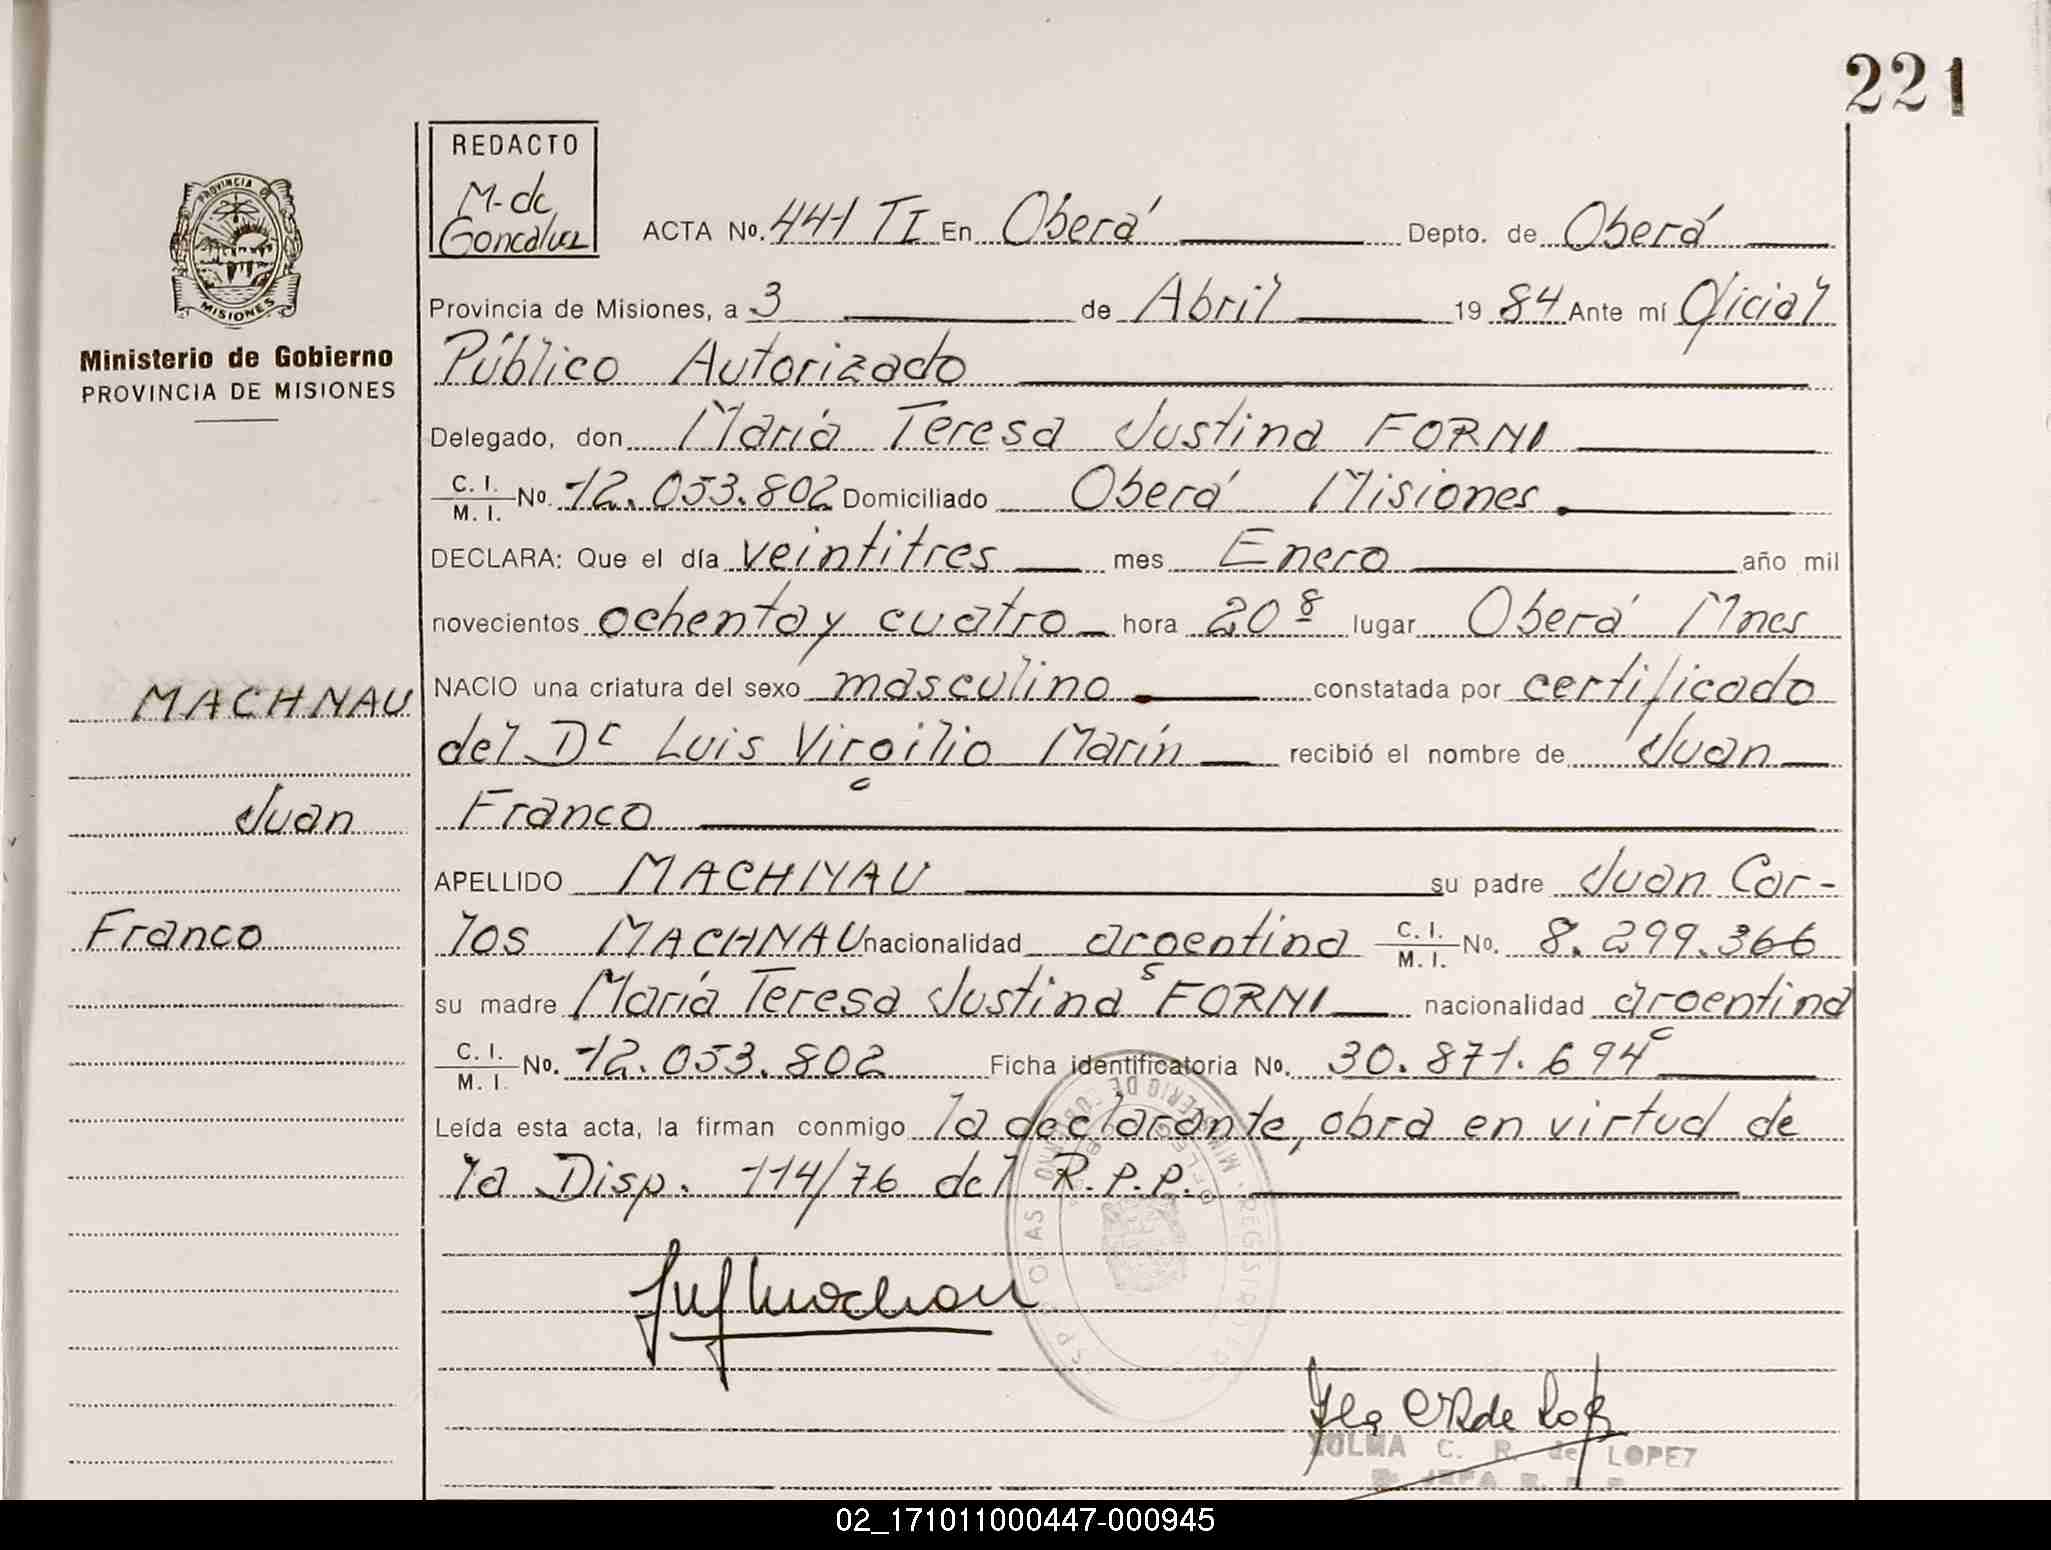 221
REDACTO
M. de
Goncalvez
PROVINCIA DE
MISIONES
Ministerio de Gobierno
PROVINCIA DE MISIONES
ACTA No. 441 TI En Oberá Depto. de Oberá
Provincia de Misiones, a 3 de Abril 19 84 Ante mí Oficial
Público Autorizado
Delegado, don María Teresa Justina FORNI
C. I.
M. I. No. 12.053.802 Domiciliado Oberá Misiones.
DECLARA: Que el día veintitres mes Enero año mil
novecientos ochenta y cuatro hora 20 8 lugar Oberá Mnes
MACHNAU
NACIO una criatura del sexo masculino constatada por certificado
del Dr Luis Virgilio Marín recibió el nombre de Juan
Juan
Franco
APELLIDO MACHNAU su padre Juan Car-
Franco
los MACHNAU nacionalidad argentina C. I.
M. I. No. 8.299.366
su madre María Teresa Justina FORNI nacionalidad argentina
C. I.
M. I. No. 12.053.802 Ficha identificatoria No. 30.871.694
Leída esta acta, la firman conmigo la declarante, obra en virtud de
la Disp. 114/76 del R.P.P.
ZULMA C. R. de LOPEZ
02_171011000447-000945